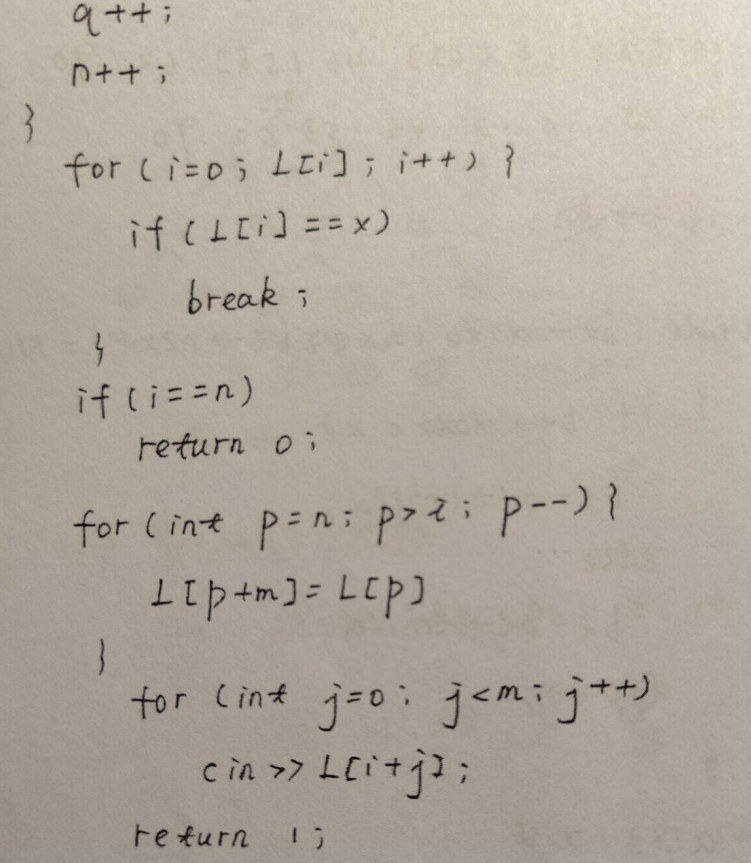 q++;
n++;
}
for (i=0; L[i]; i++) {
if (L[i]==x)
break;
}
if (i==n)
return 0;
for (int p=n; p>i; p--) {
L[p+m]=L[p]
}
for (int j=0; j<m; j++)
cin>>L[i+j];
return 1;